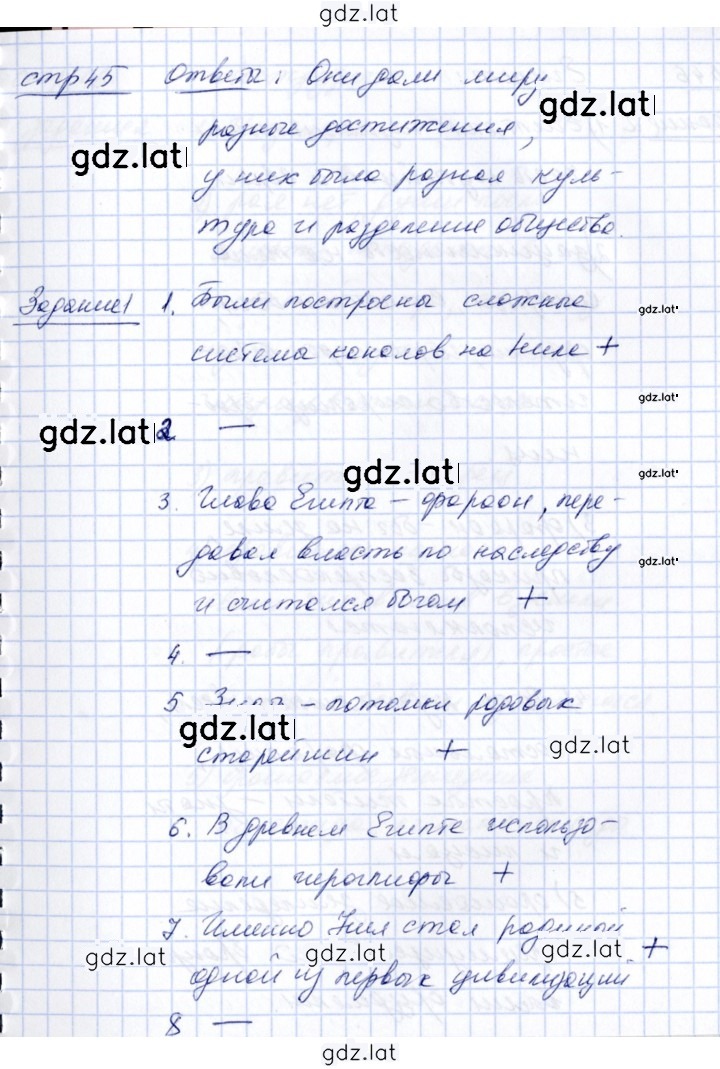 gdz.lat
стр 45 Ответы: Они дали миру
gdz.lat
разные достижения,
gdz.lat
у них была разная куль-
тура и разделение общества.
Задание 1 1. Были построены сложные
gdz.lat
система каналов на Ниле +
gdz.lat
gdz.lat 2 —
gdz.lat
gdz.lat
3. Глава Египта – фараон, пере-
давал власть по наследству
gdz.lat
и считался Богом +
4. —
5 – потомки родовых
gdz.lat
старейшин +
gdz.lat
6. В древнем Египте использо-
вали иероглифы +
7. Именно Нил стал родиной
gdz.lat gdz.lat gdz.lat +
одной из первых цивилизаций
8 —
gdz.lat